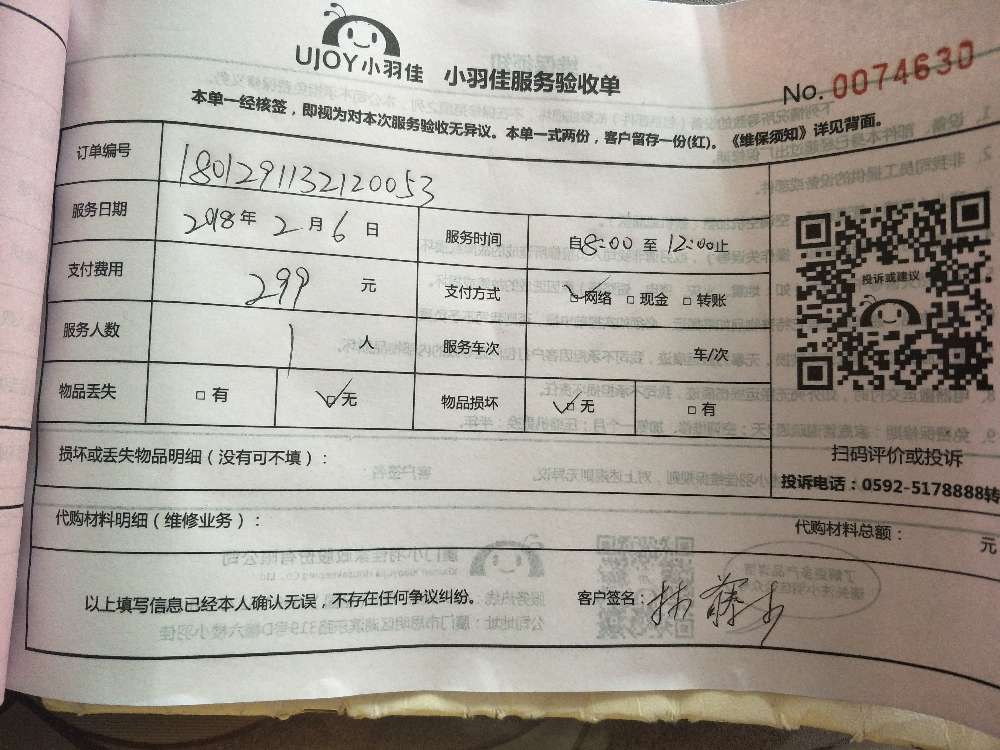 UJOY小羽佳 小羽佳服务验收单
No. 0074630
本单一经核签，即视为对本次服务验收无异议。本单一式两份，客户留存一份(红)。《维保须知》详见背面。
订单编号 1801291132120053
服务日期 2018年2月6日 服务时间 自8:00至12:00止
支付费用 299 元 支付方式 ☑网络 □现金 □转账
服务人数 1 人 服务车次 车/次
物品丢失 □有 ☑无 物品损坏 ☑无 □有
投诉或建议
扫码评价或投诉
投诉电话：0592-5178888转
损坏或丢失物品明细（没有可不填）：
代购材料明细（维修业务）： 代购材料总额： 元
以上填写信息已经本人确认无误，不存在任何争议纠纷。 客户签名：